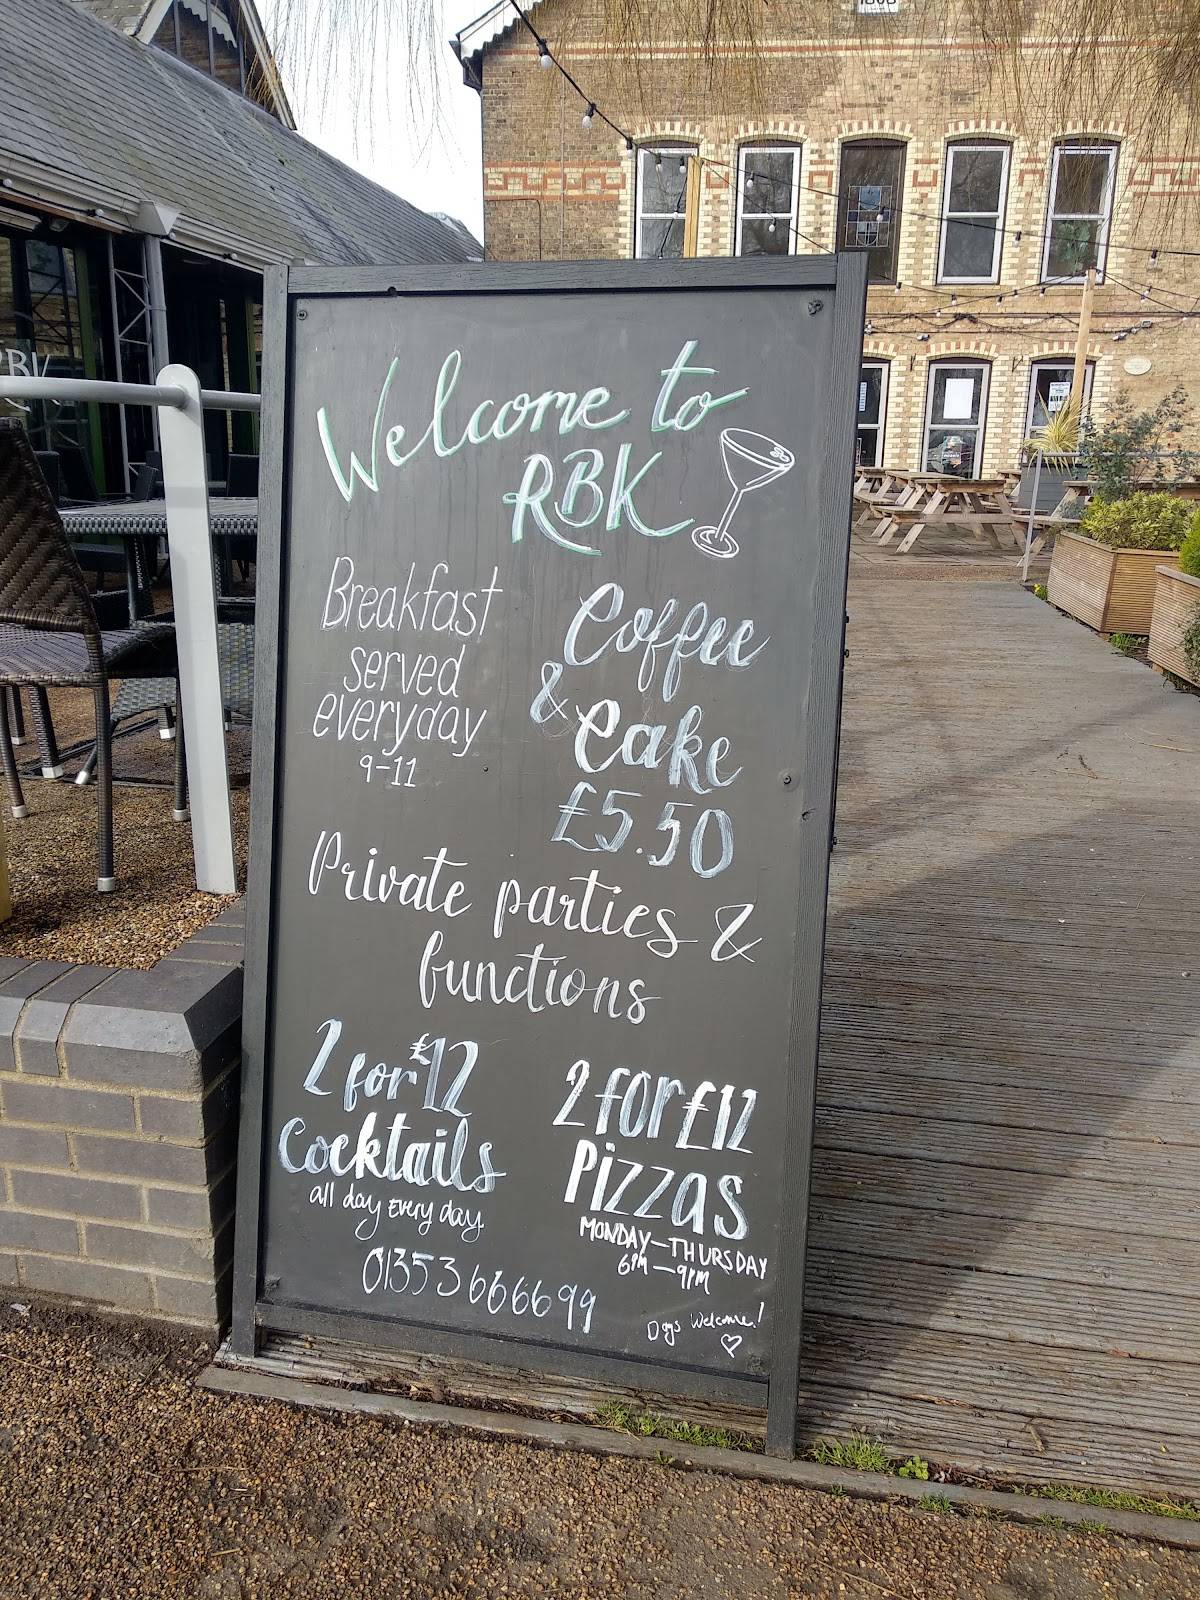 Welcome to
RBK
Breakfast
served
everyday
9-11
Coffee
&
Cake
£5.50
Private parties &
functions
2 for £12
Cocktails
all day Every day.
2 FOR £12
PIZZAS
MONDAY-THURSDAY
6PM-9PM
01353666699
Dogs Welcome!
RBK